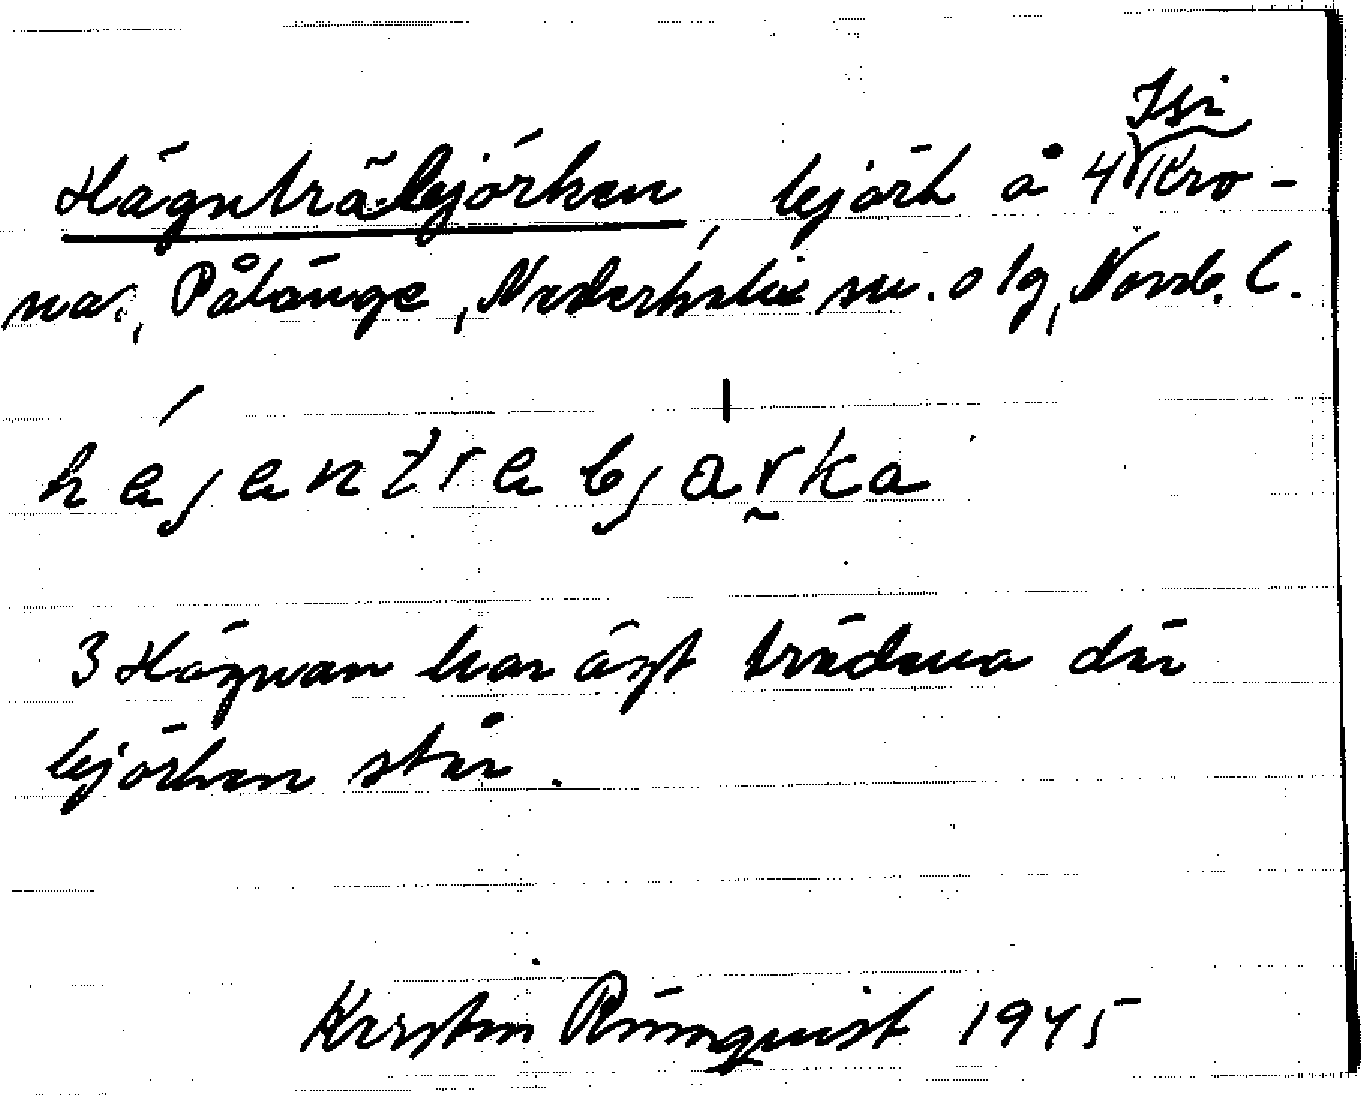 Isi
Hägnträbjörken, björk å 4 Kro-
nor, Pålänge, Nederkalix sn. o lg, Norrb. l.
hajantrabjarka
3 Hägnan har ägt träderna där
björken står.
Kerstin Rönnquist 1945